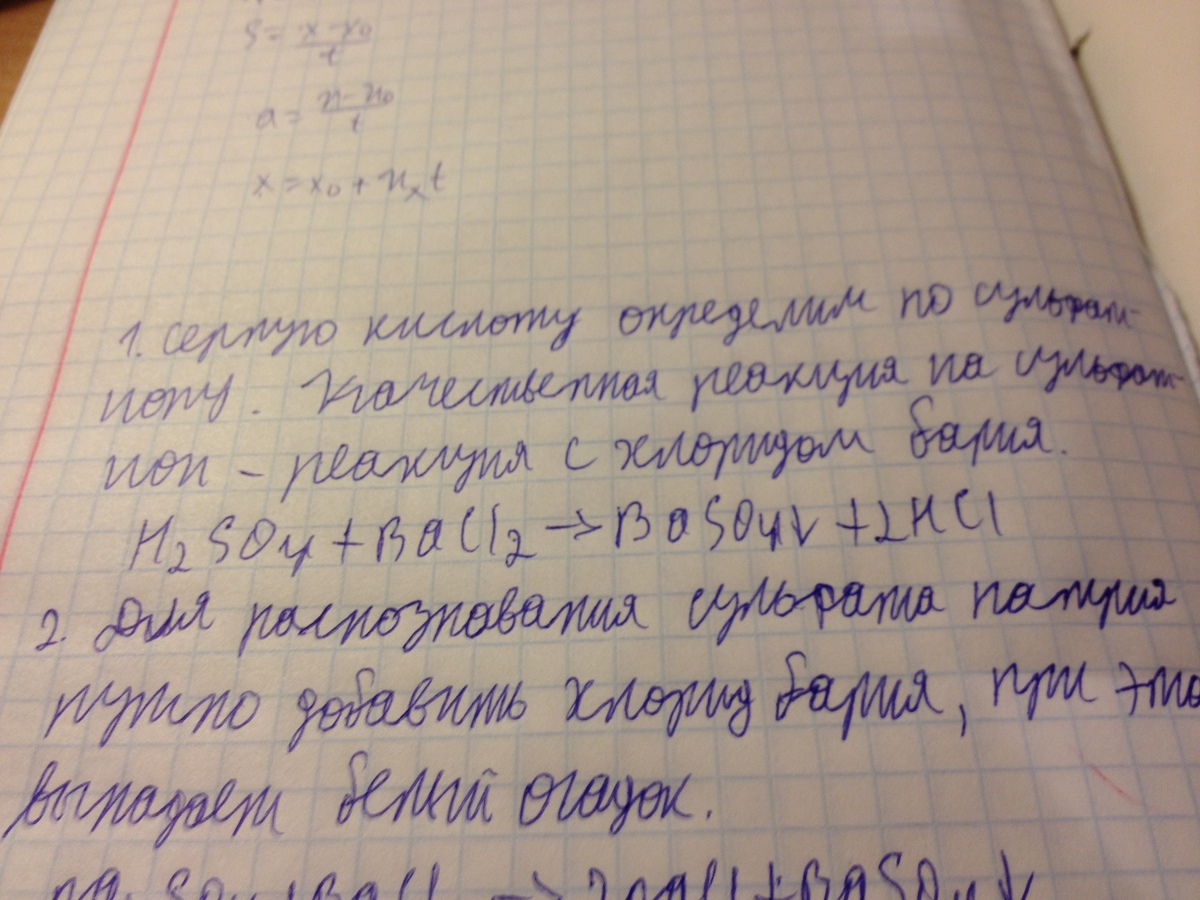 S = x - x₀ / t
a = v - v₀ / t
x = x₀ + vₓt
1. Серную кислоту определим по сульфат-
иону. Качественная реакция на сульфат-
ион - реакция с хлоридом бария.
H₂SO₄ + BaCl₂ → BaSO₄↓ + 2HCl
2. Для распознавания сульфата натрия
нужно добавить хлорид бария, при это
выпадает белый осадок.
Na₂SO₄ + BaCl₂ → 2NaCl + BaSO₄↓